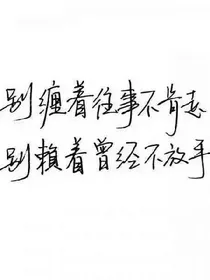 别缠着往事不肯忘
别賴着曾经不放手